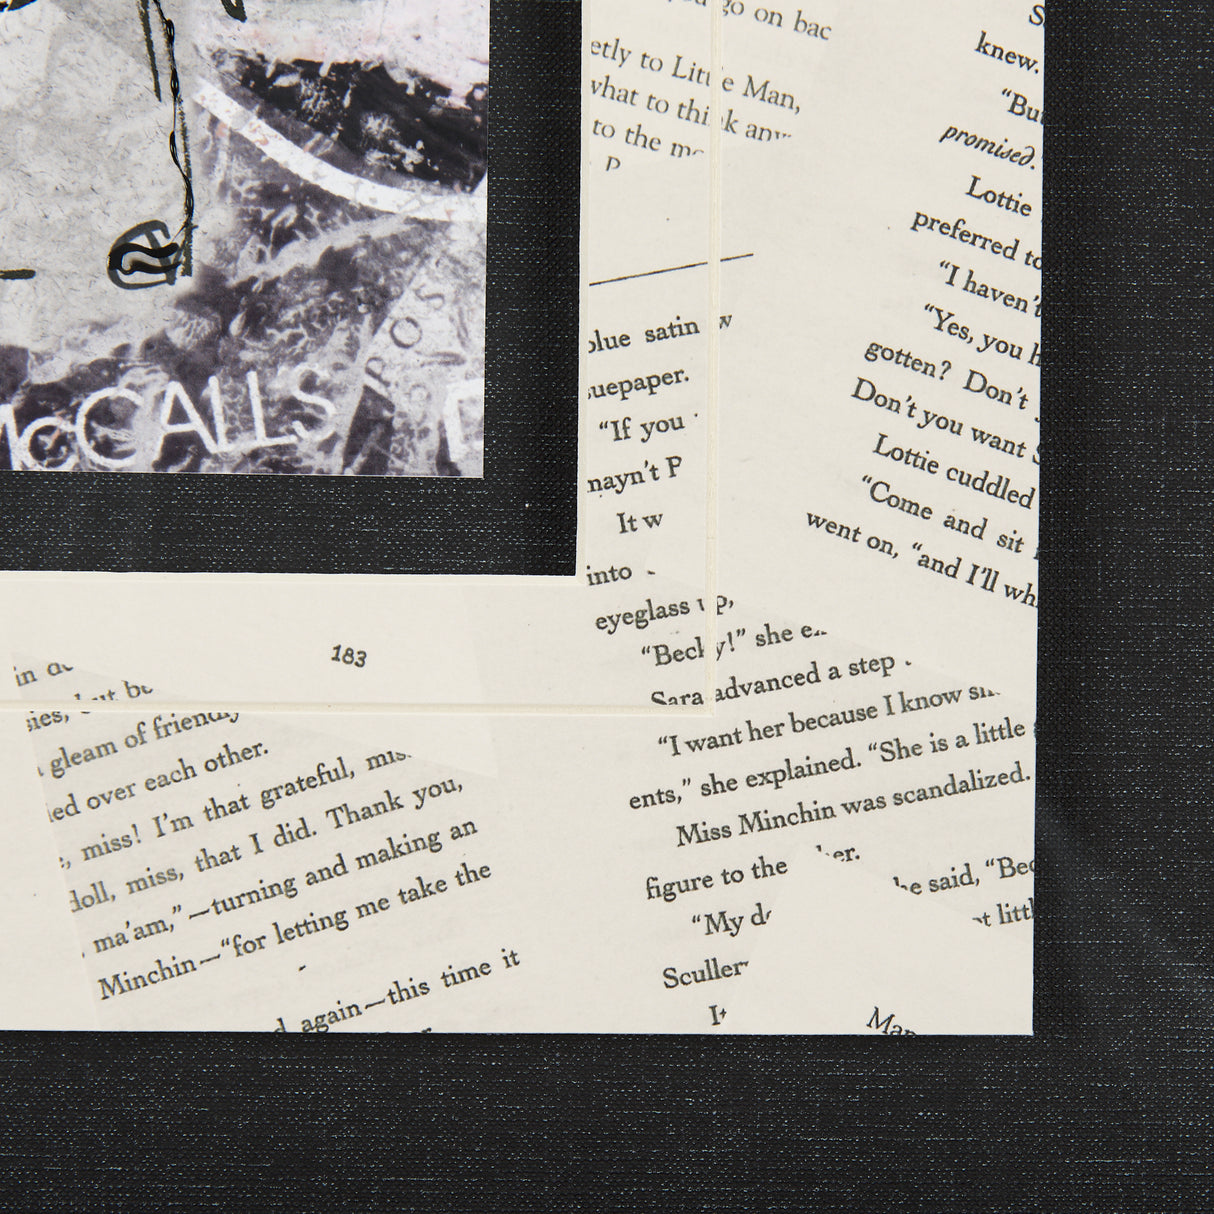 go on bac
etly to Litt e Man,
what to thi k any
to the
POS
McCALLS
blue satin w
uepaper.
"If you
mayn't P
It w
into
eyeglass up,
"Becky!" she
Sara advanced a step
"I want her because I know
ents," she explained. "She is a little
Miss Minchin was scandalized.
figure to the her.
"My
he said, "Bec
Sculler
It
knew.
"But
promised.
Lottie
preferred to
"I haven't
"Yes, you h
gotten? Don't
Don't you want S
Lottie cuddled
"Come and sit
went on, "and I'll wh
183
in
sies, but
gleam of friendly
ed over each other.
, miss! I'm that grateful, mis
doll, miss, that I did. Thank you,
ma'am,"—turning and making an
Minchin—"for letting me take the
again—this time it